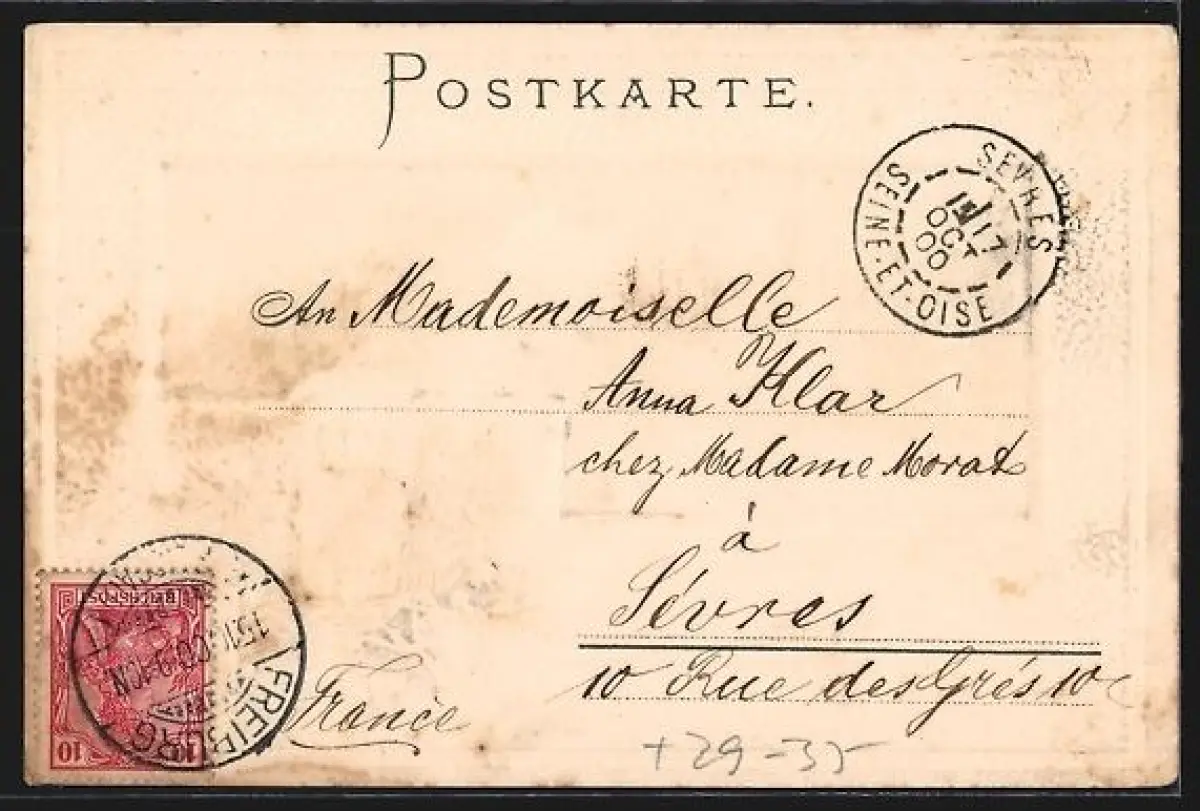 POSTKARTE.
SEVRES
17
OCT
00
SEINE-ET-OISE
An Mademoiselle
Anna Klar
chez Madame Morat
à
Sèvres
10 Rue des Grés 10
France
REICHSPOST
10 10
FREIBURG
+29-35